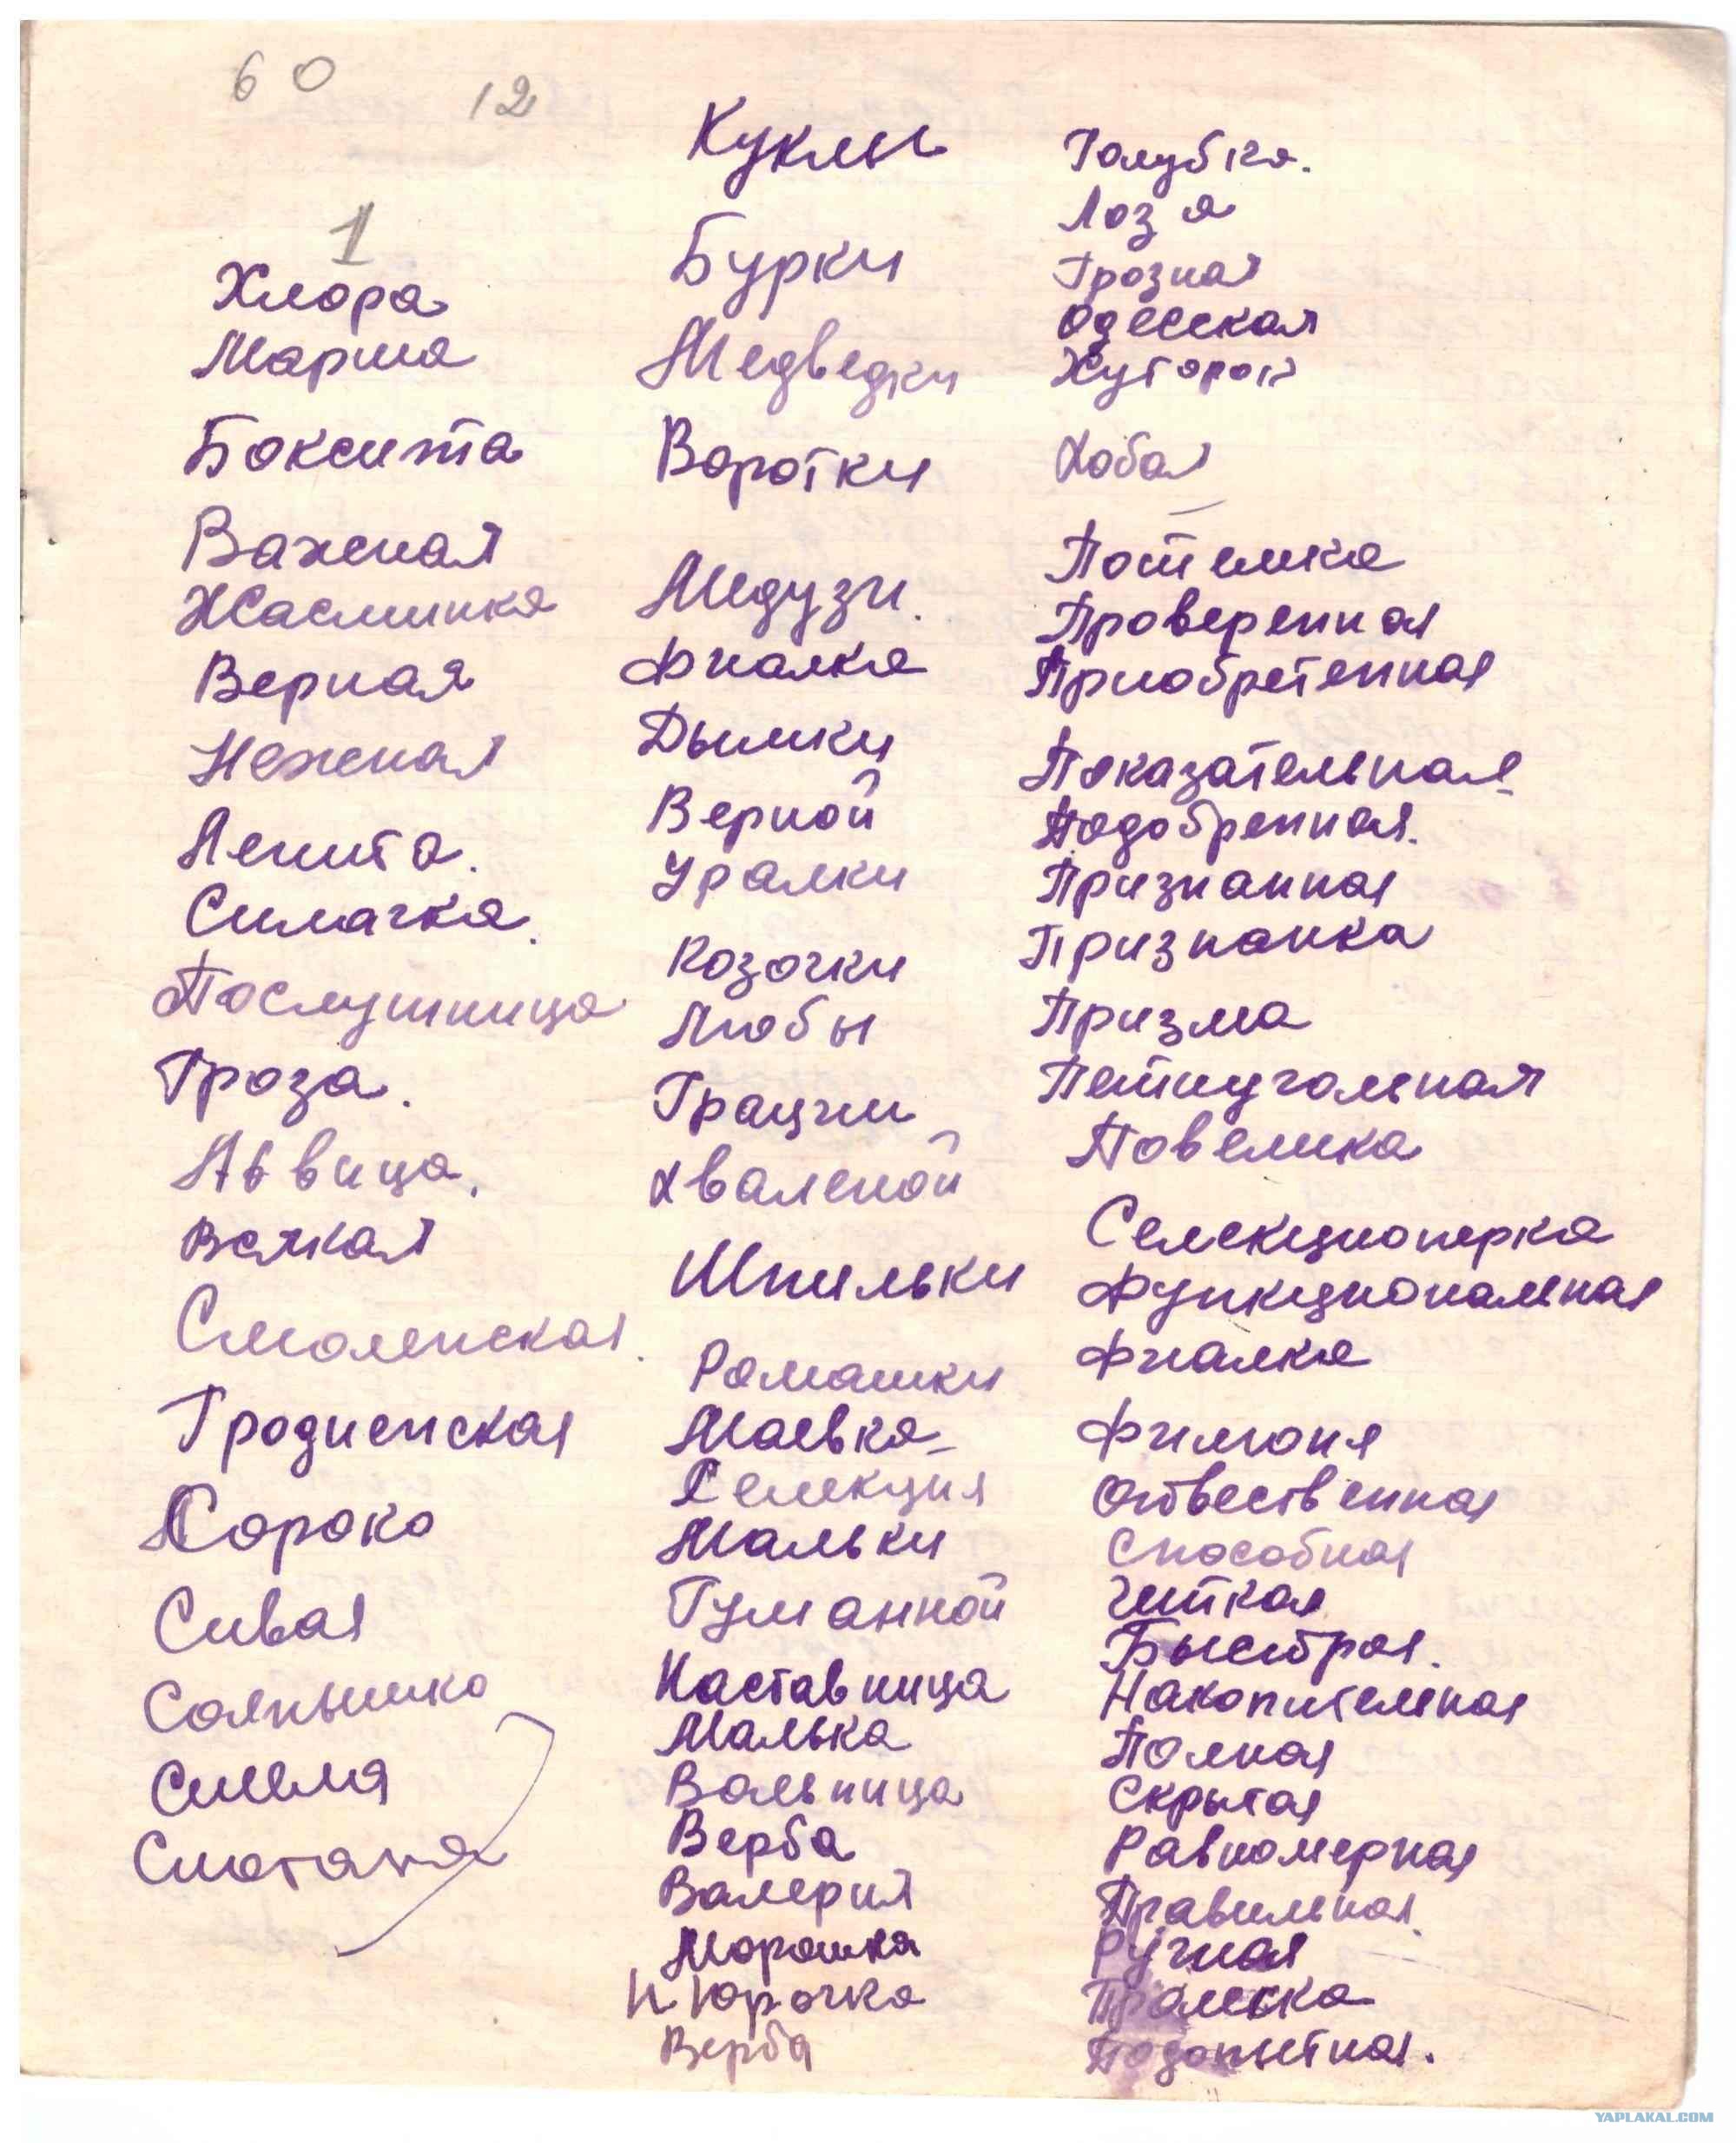 60 12
1
Хлора
Марта
Боксита
Важная
Жасминка
Верная
Нежная
Ленита.
Симачка.
Послушница
Гроза.
Львица.
Всякая
Смоленская.
Гродненская
Сорока
Сивая
Солнышко
Сметана
Куклы
Бурки
Медведки
Воротки
Медузы.
Фиалка
Дымки
Верной
Уралки
Козочки
Любы
Грации
Хваленой
Шпильки
Ромашки
Маевка
Селекция
Мальки
Туманной
Наставница
Малька
Вольница
Верба
Валерия
Морошка
Н. Юрочка
Верба
Голубка.
Лоза
Грозная
Одесская
Хуторок
Потемка
Проверенная
Приобретенная
Показательная
Подобренная.
Признанная
Признанка
Призма
Повелика
Селекционерка
Функциональная
Фиалка
Филония
Ответственная
Способная
Четкая
Быстрая.
Накопительная
Полная
Скрытая
Равномерная
Правильная
Ручная
Подопытная.
YAPLAKAL.COM